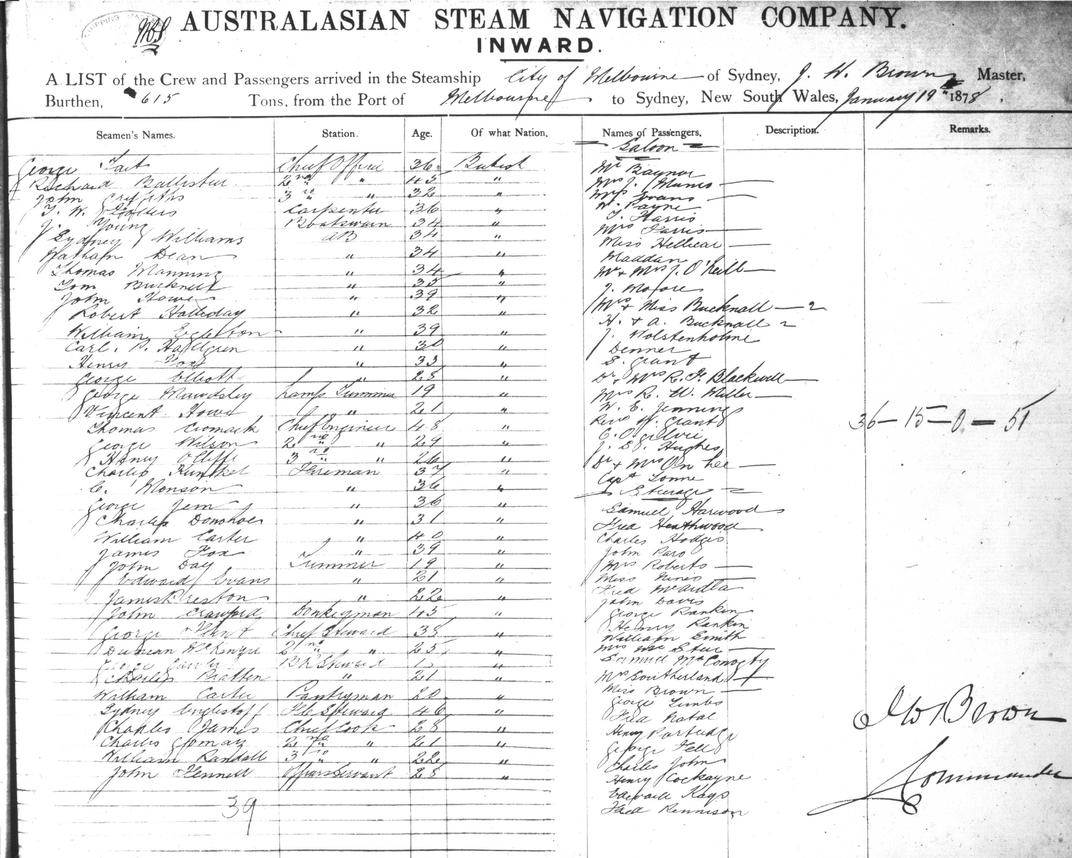 AUSTRALASIAN STEAM NAVIGATION COMPANY.
INWARD.
A LIST of the Crew and Passengers arrived in the Steamship City of Melbourne of Sydney, J. W. Brown Master,
Burthen, 615 Tons, from the Port of Melbourne to Sydney, New South Wales, January 19th 1878.
Seamen's Names. Station. Age. Of what Nation. Names of Passengers. Description. Remarks.
Saloon
George Tait Chief Officer 36 British
Richard Ballister 2nd " "
John Griffiths 3rd " 32 "
Carpenter 36 "
J. Young Boatswain 34 "
Sydney Williams AB 34 "
Nathan Dean " 34 "
Thomas Manning " 34 "
Tom Bucknell " "
John Howe " 39 "
Robert Halliday " 32 "
William Eccleston " 39 "
Carl. " 30 "
Henry " "
George Elliott " 28 "
George Mawdsley Lamp Trimmer 19 "
Vincent Howe " 21 "
Thomas Cromack Chief Engineer 48 "
George Wilson 2nd " 29 "
Henry 3rd " 26 "
Charles Fireman 37 "
C. Monson " 36 "
George Jem " 36 "
Charles Donohoe " 31 "
William Carter " 40 "
James Fox " 39 "
John Day Trimmer 19 "
Edward Evans " 21 "
James Preston " 22 "
John Crawford Donkeyman "
George Flint Chief Steward "
Duncan McKenzie 2nd " 25 "
George "
Charles Bratten " 21 "
William Carter Pantryman 20 "
Sydney Steward 46 "
Charles James Chief Cook 28 "
Charles 2nd " 21 "
William Randall 3rd " 22 "
John Fennell Officers Servant 28 "
39
Mr Raynor
Mrs J. Munro
Mrs Evans
W. Payne
T. Harris
Mrs Harris
Miss Hellicar
Madden
Mr & Mrs J. O'Neill
J.
Mrs & Miss Bucknall 2
H. & A. Bucknall 2
J. Wolstenholme
Denner
S. Grant
Dr & Mrs R. F. Blackwell
Mrs R. W. Miller
W. E. Jennings
Revd W. Grant
C. Ogilvie
J. Hughes
Dr & Mrs
Capt
Steerage
Samuel Harwood
Fred Heathwood
Charles Hodges
John
Mrs Roberts
Miss
Fred McArdle
John Davis
George Rankin
Henry Rankin
William Smith
Mrs
Samuel McConogty
Mrs Southerland
Miss Brown
George Limbs
Fred Natal
Henry Partridge
George Fell
Charles John
Henry Cockayne
Edward Kays
Fred Rennison
36 - 15 - 0 = 51
J W Brown
Commander